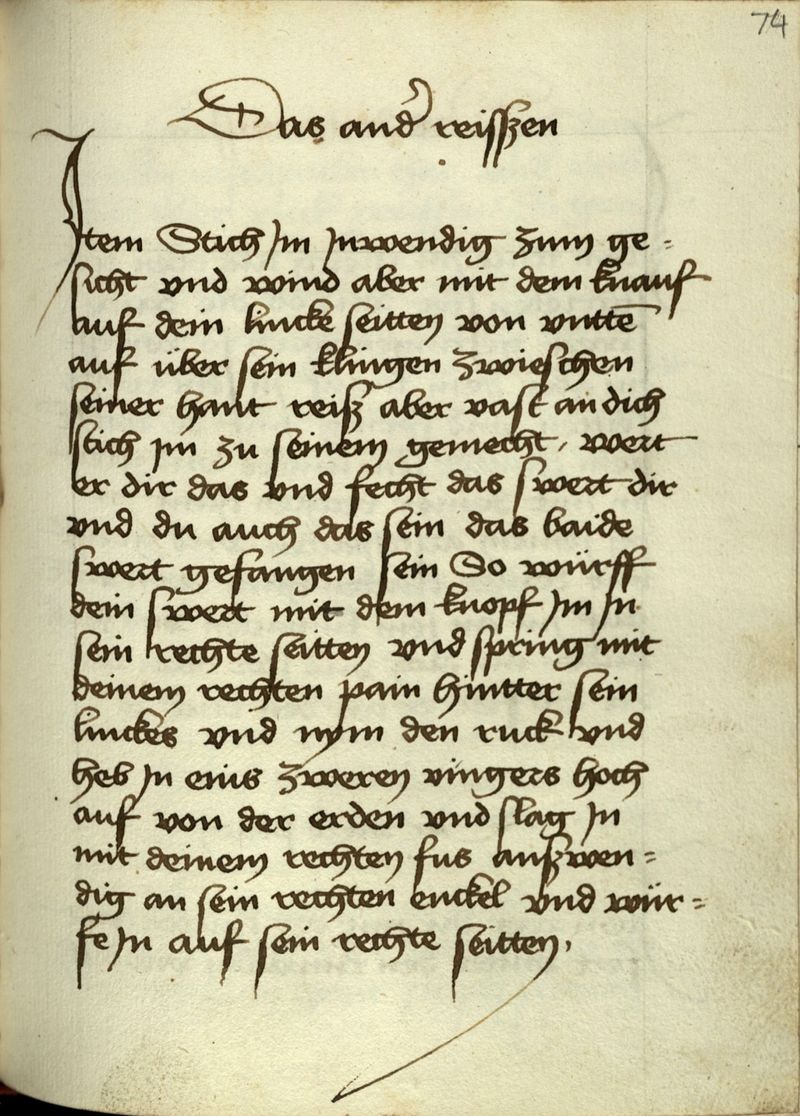 74
Das and' reisszen
Item Stich Im Inwendig zum ge=
sicht vnd wind aber mit dem knauf
auf dein lincke seitten von vntte̅
auf über sein klingen zwieschen
seiner hant reisz aber vast an dich
stich im zu seinem gemecht, wert
er dir das vnd fecht das swert dir
vnd du auch das sein das baide
swert gefangen sein So würff
dein swert mit dem knopf Im In
sein rechte seitten vnd spring mit
deinem rechten pain hintter sein
linckes vnd nym den ruck vnd
heb In eins zweren vingers hoch
auf von der erden vnd slag In
mit deinem rechten fus auszwen=
dig an sein rechten enckel vnd wür=
fe In auf sein rechte seitten,